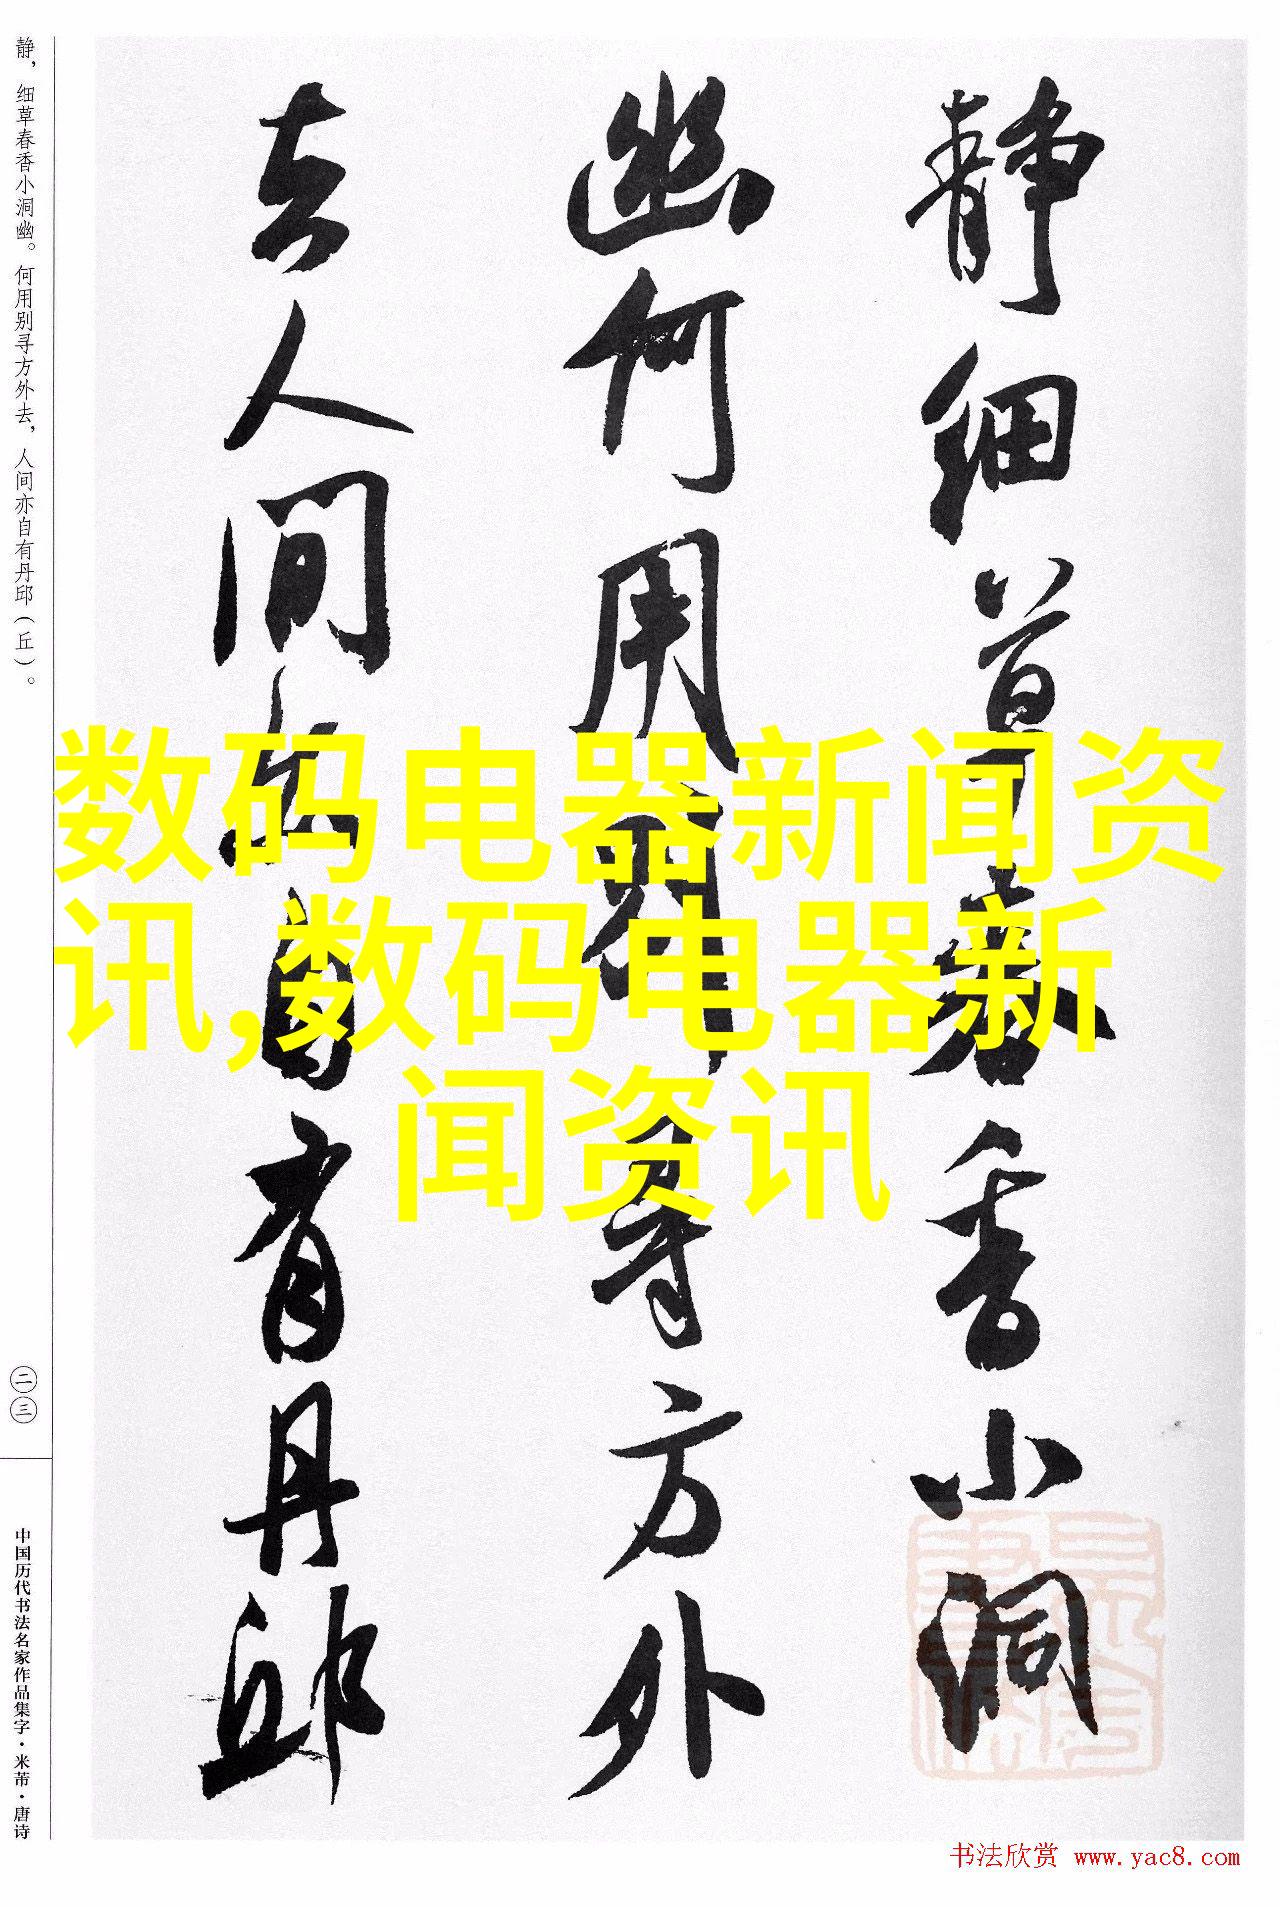 静细草春香小洞
幽何用别寻方外
去人间亦自有丹邱
静，细草春香小洞幽。何用别寻方外去，人间亦自有丹邱（丘）。
二三
中国历代书法名家作品集字·米芾·唐诗
数码电器新闻资
讯,数码电器新
闻资讯
书法欣赏 www.yac8.com